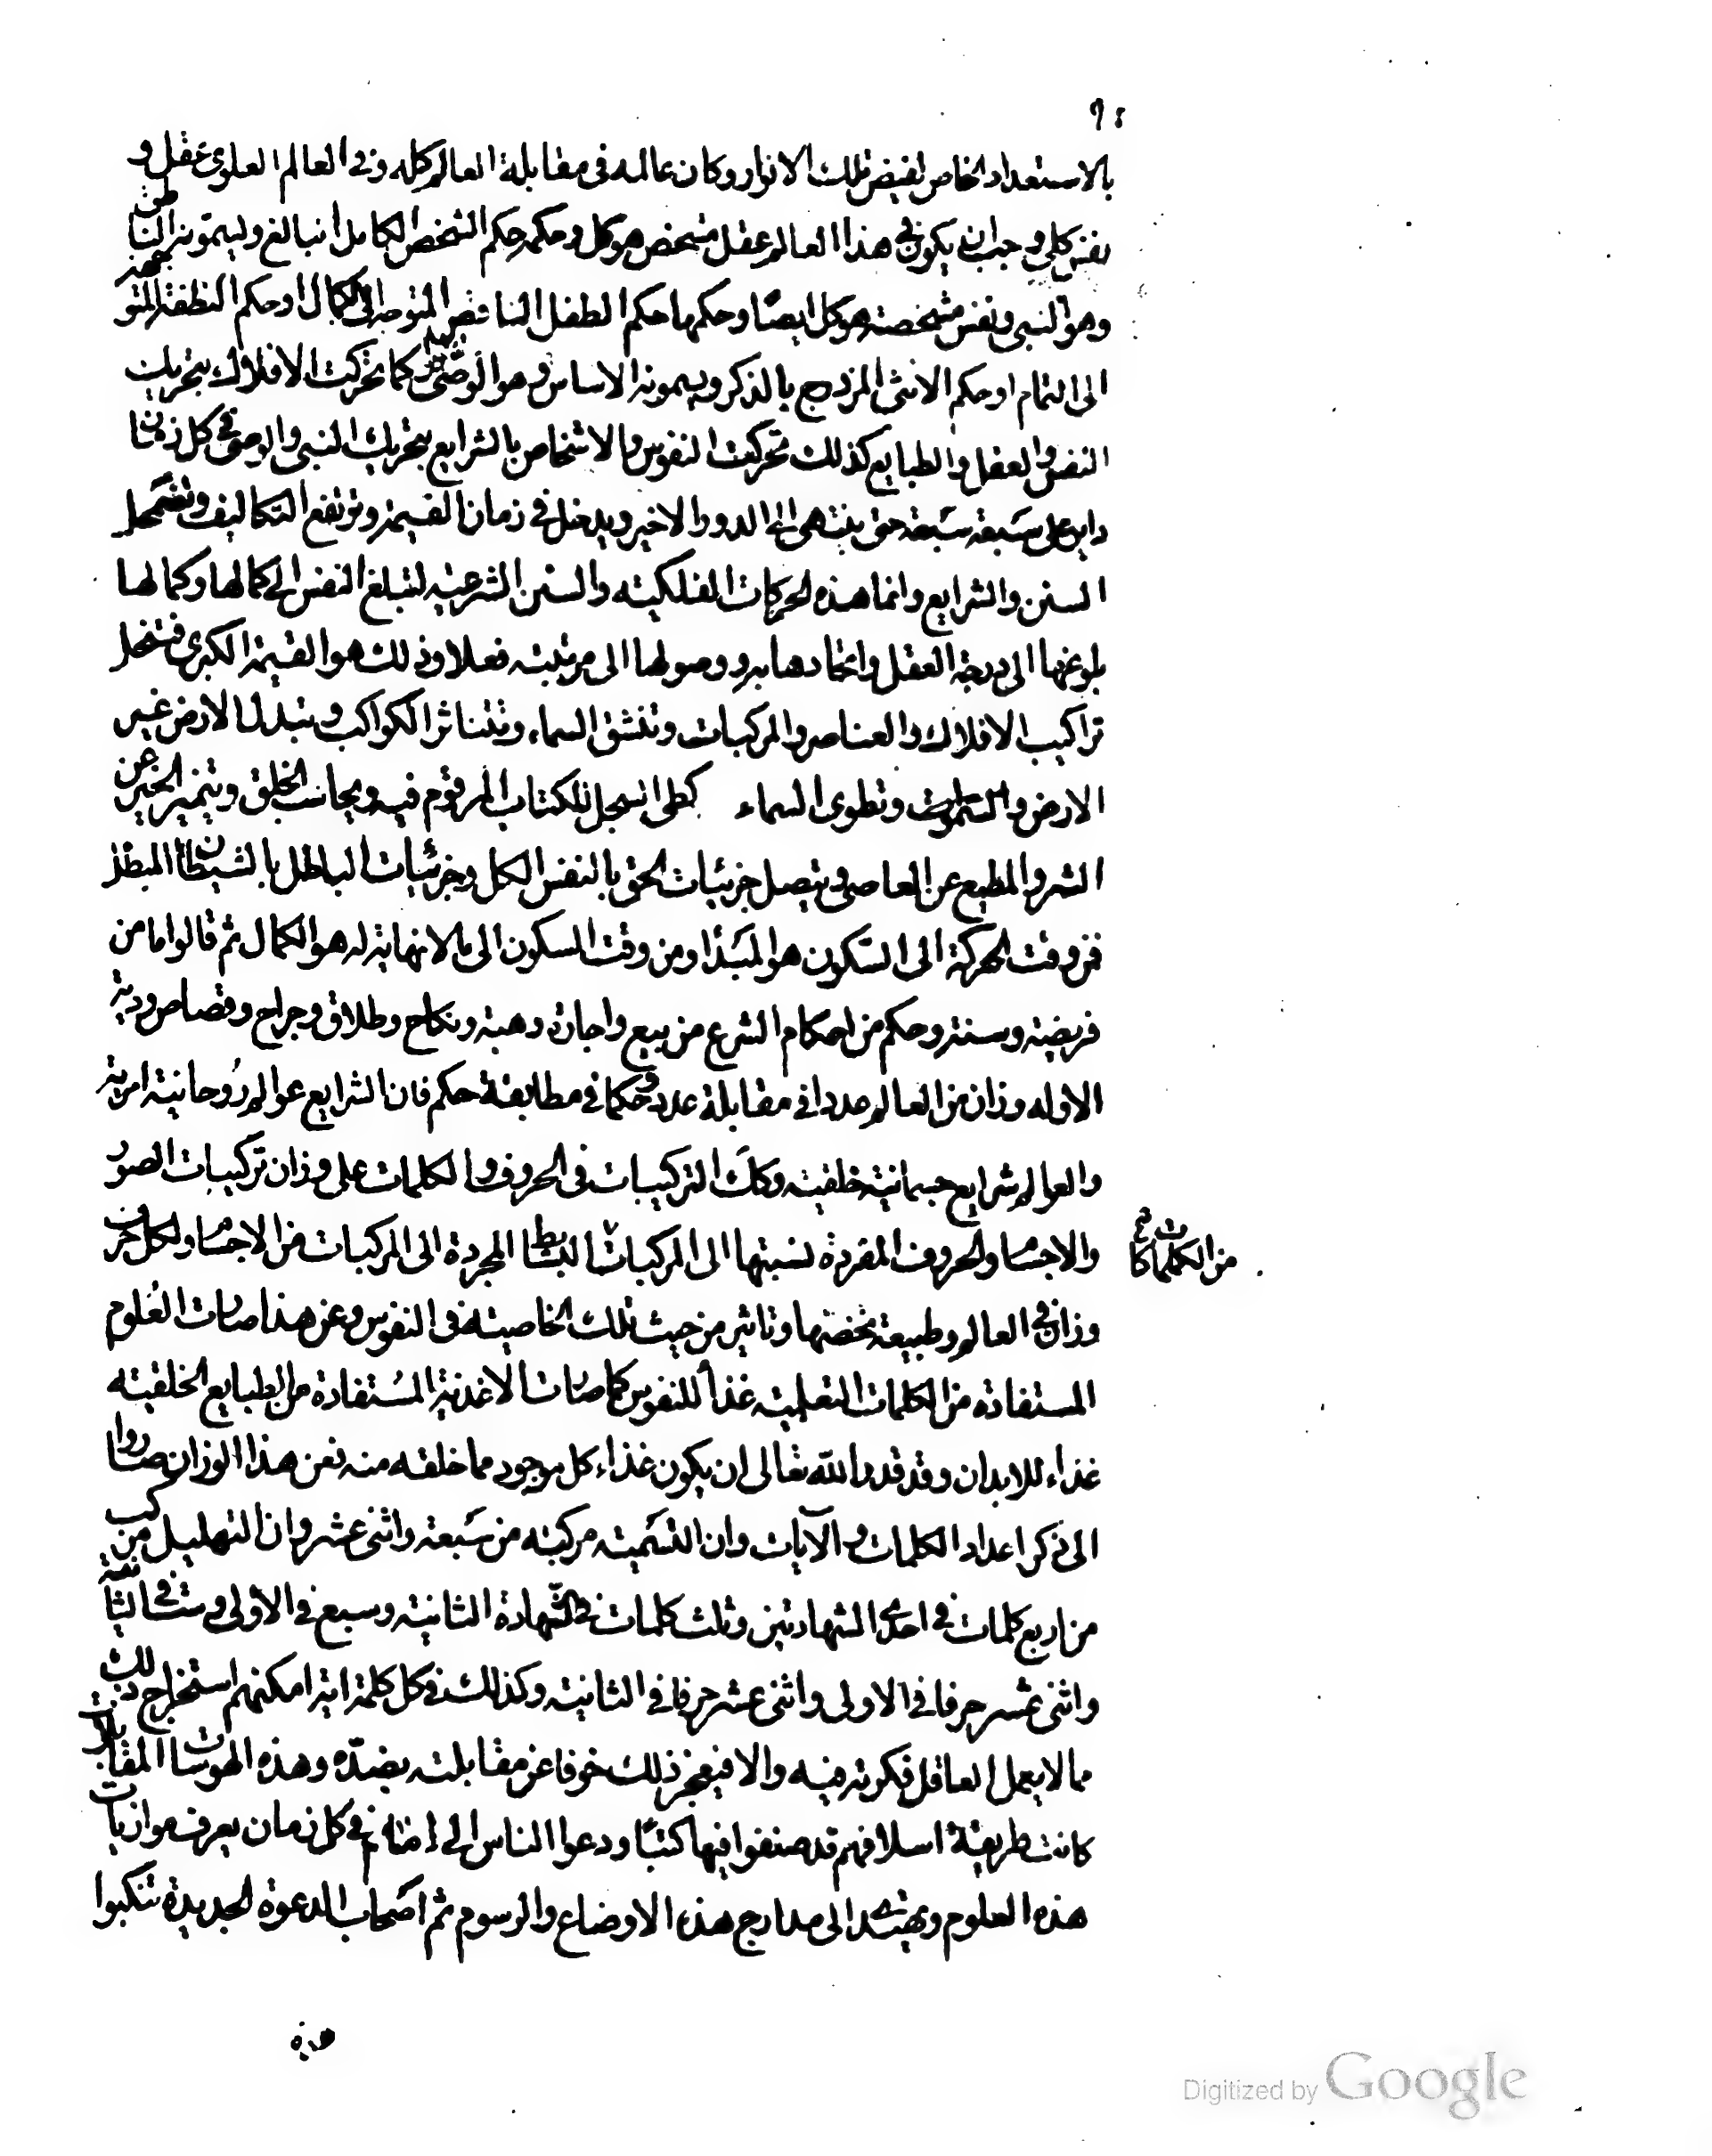 ٩٤
بالاستعداد الخاص لفيض تلك الانوار وكان عالمه فى مقابلة العالم كله وفى العالم العلوى عقل و
نفس كلى وجب ان يكون فى هذا العالم عقل مشخص هو كل وحكمه حكم الشخص الكامل البالغ ويسمونه الناطق
وهو النبى ونفس مشخصة هو كل ايضًا وحكمها حكم الطفل الناقص المتوجه الى الكمال او حكم النطفة المتوجهة
الى التمام او حكم الانثى المزدوج بالذكر ويسمونه الاساس وهو الوصى كما تحركت الافلاك بتحريك
النفس والعقل والطبايع كذلك تحركت النفوس والاشخاص بالشرايع بتحريك النبى والوصى فى كل زمان
داير على سَبعة سَبعة حتى ينتهى الى الدور الاخير ويدخل فى زمان القيمة وترتفع التكاليف وتضمحل
السنن والشرايع وانما هذه الحركات الفلكية والسنن الشرعية لتبلغ النفس الى كمالها وكمالها
بلوغها الى درجة العقل واتحادها به ووصولها الى مرتبته فعلا وذلك هو القيمة الكبرى فتنحل
تراكيب الافلاك والعناصر والمركبات وتنشق السماء وتتناثر الكواكب وتبدل الارض غير
الارض والسموات وتطوى السماء كطى السجل للكتاب المرقوم فيه ويحاسب الخلق ويتميز الخير عن
الشر والمطيع عن العاصى ويتصل جزئيات الحق بالنفس الكل وجزئيات الباطل بالشيطان المبطل
فمن وقت الحركة الى السّكون هو المبَدَأ ومن وقت السكون الى ما لا نهاية له هو الكمال ثم قالوا ما من
فريضة وسنة وحكم من احكام الشرع من بيع واجارة وهبة ونكاح وطلاق وجراح وقصاص ودية
الا وله وزان من العالم عددا فى مقابلة عدد وحكما فى مطابقة حكم فان الشرايع عوالم رُوحانية امرية
والعوالم شرايع جسمانية خلقية وكذلَك التركيبات فى الحروف والكلمات على وزان تركيبات الصور
والاجسام والحروف المفردة نسبتها الى المركبات البسائط المجردة الى المركبات من الاجسام ولكل حرف
من الكلمات كا
وزان فى العالم وطبيعة يخصها وتاثير من حيث تلك الخاصية فى النفوس وعن هذا صارت العُلوم
المستفادة من الكلمات التعليمية غذاً للنفوس كما صارت الاغذية المسُتفادة من الطبايع الخلقية
غذاء للابدان وقد قدر الله تعالى ان يكون غذاء كل موجود مما خلقه منه فعن هذا الوزان صاروا
الى ذكر اعداد الكلمات والآيات وان التسَمية مركبة من سَبعة واثنى عشر وان التهليل مركب
من اربع كلمات فى احدى الشهادتين وثلث كلمات فى الشهادة الثانية وسبع قطع فى الاولى وست فى الثانية
واثنى عشر حرفا فى الاولى واثنى عشر حرفا فى الثانية وكذلك فى كل كلمة اية امكنهم استخراج ذلك
مما لا يعمل العاقل فكرته فيه والا فيعجز ذلك خوفا عن مقابلته بضدّه وهذه المقابلات
كانت طريقة اسلافهم قد صنفوا فيها كتبًا ودعوا الناس الى امام فى كل زمان يعرف موازنات
هذه العلوم ويهتدى الى مدارج هذه الاوضاع والرسوم ثم اصَحاب الدعوة الجديدة تنكبوا
هذه
Digitized by Google